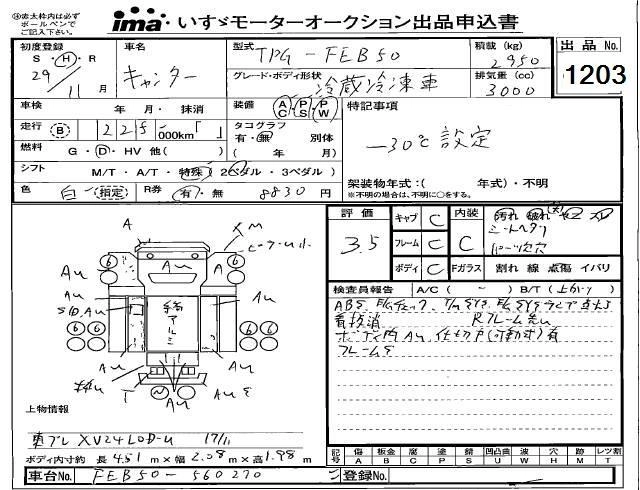 ※赤太枠内は必ず
ボールペンで
ご記入下さい。
ima いすゞモーターオークション出品申込書
初度登録 S・H・R 29年 11月
車名 キャンター
型式 TPG-FEB50
積載(kg) 2950
出品No. 1203
グレード・ボディ形状 冷蔵冷凍車
排気量(cc) 3000
車検 年 月・抹消
装備 AC・PS・PW
特記事項
-30℃設定
走行 B 225,000km「 」
タコグラフ 有・無 別体
( 年 月)
燃料 G・D・HV 他( )
シフト M/T・A/T・特殊(2ペダル・3ペダル)
架装物年式:( 年式)・不明
※不明の場合は、不明に○をする。
色 白(指定)
R券 有・無 8830円
評価 3.5
キャブ C
フレーム C
ボディ C
内装 C
汚れ 破れ ヤニ スレ
シートヘタリ
パーツ欠穴
Fガラス 割れ 線 点傷 イバリ
検査員報告 A/C ( - ) B/T (上かり)
看板消 Rフレーム
ボディ内Au、仕切戸(可動式)有
A
M
6 6
Au Au
Au
S(D,Au
Au
縞アルミ
6 6 6 6
Au
Au
T
Au
上物情報
東プレ XV24LOD-U 17/11
ボディ内寸約 長 4.51 m×幅 2.08 m×高 1.98 m
記号 傷 A 板金 B 腐 C 塗 P 錆 S 凹凸曲 U 波 W 穴 H 時 M レツ割 T
車台No. FEB50-560270
登録No.